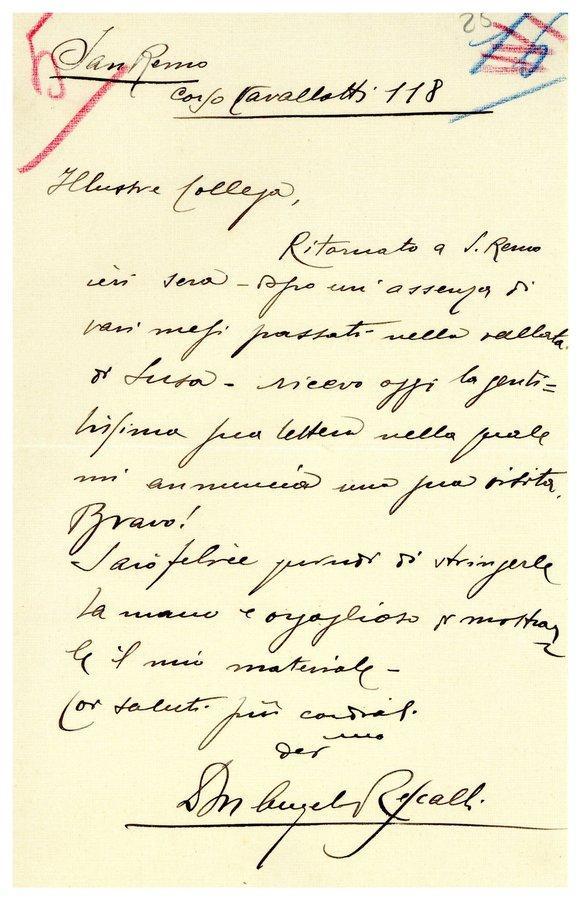 25
San Remo
Corso Cavallotti 118
Illustre Collega,
Ritornato a S. Remo
ieri sera - dopo un' assenza di
vari mesi passati nella vallata
di Susa - ricevo oggi la genti=
lissima sua lettera nella quale
mi annuncia una sua visita.
Bravo!
Sarò felice quindi di stringerle
la mano e orgoglioso di mostrar
le il mio materiale -
Coi saluti più cordiali.
dev mo
Don Angelo Rescalli.